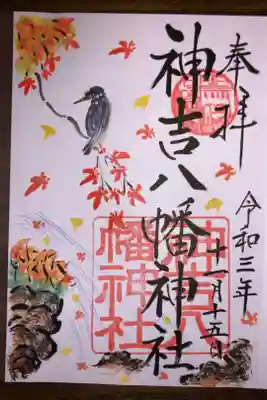 奉拝
令和三年
十一月十五日
神吉八幡神社
神吉八
幡神社